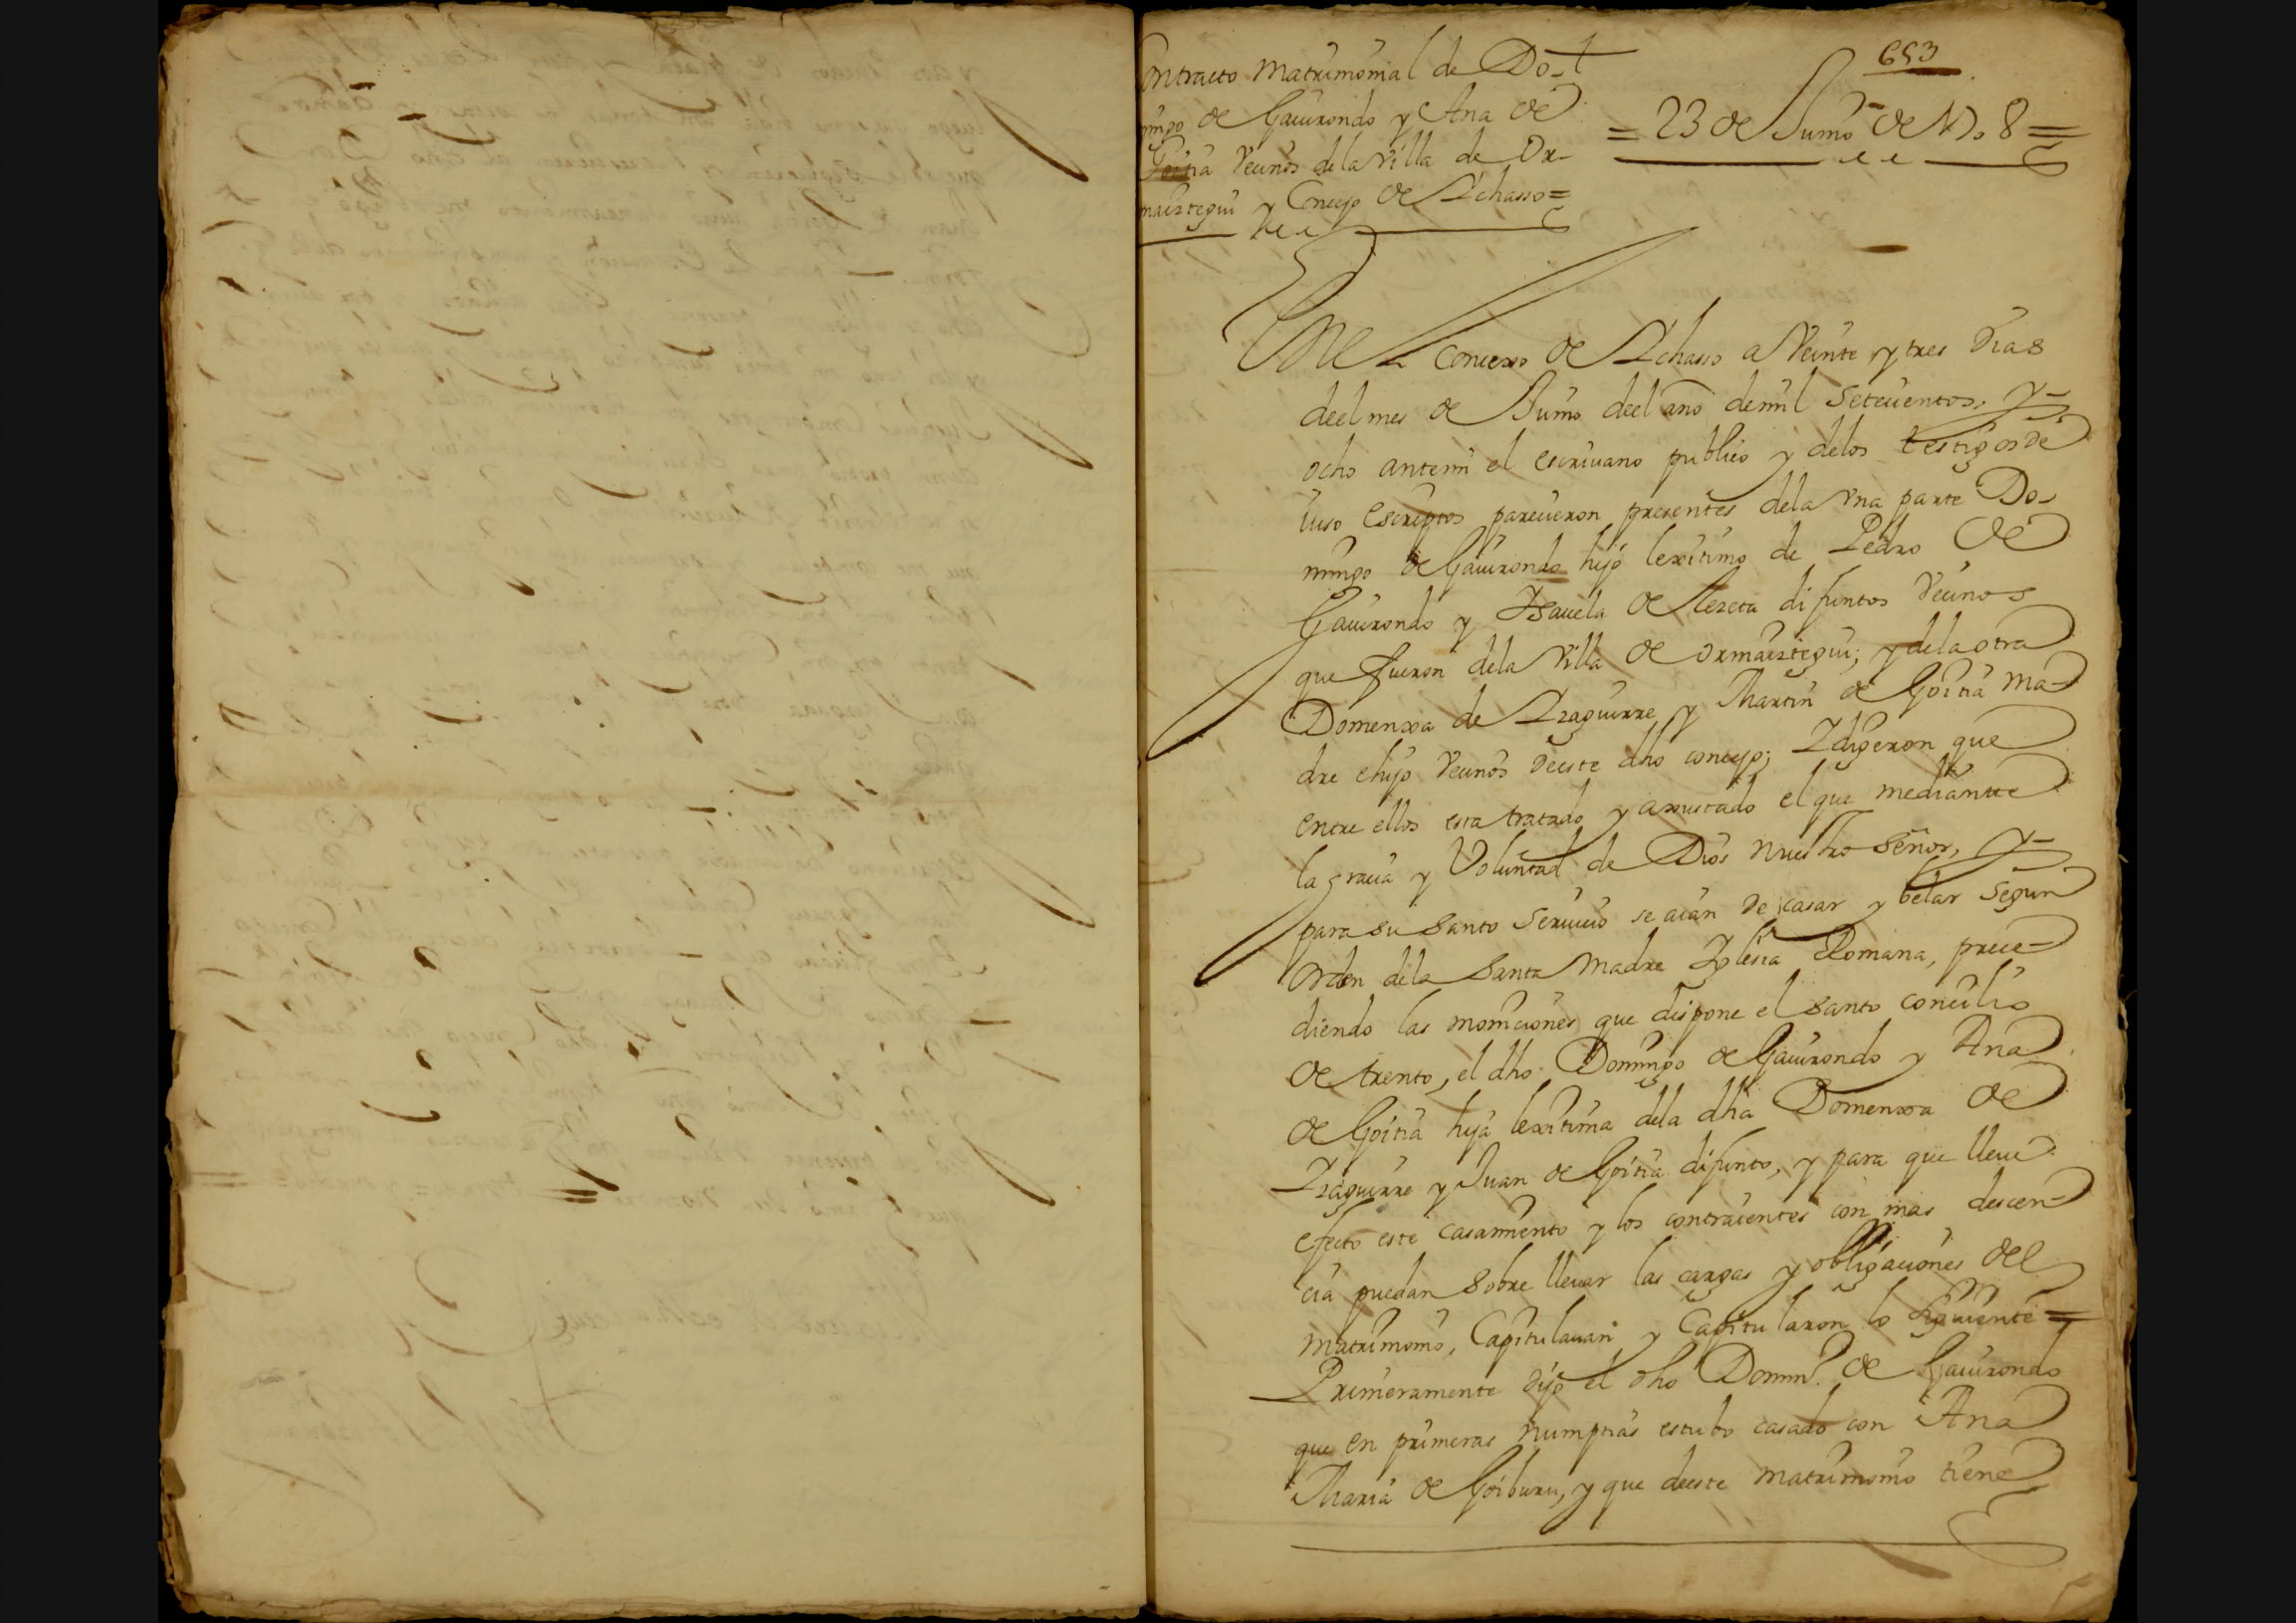 Contracto Matrimonial de Do-
mingo de Gauirondo y Ana de
Goitia Vecinos de la Villa de Or-
maiztegui y Concejo de Ichasso=
653
= 23 de Junio de 1708 =
En el Concexo de Ichasso a Veinte y tres dias
deel mes de Junio deel año de mil setecientos, y=
ocho antemi el escriuano publico y delos testigos de
iuso escriptos parecieron presentes dela vna parte Do-
mingo de Gauirondo hijo lexitimo de Pedro de
Gauirondo y Ysauela de Aezeta difuntos Vecinos
que fueron dela Villa de ormaiztegui; y dela otra
Domenxa de Izaguirre y Martin de Goitia ma-
dre e hijo Vecinos deeste dho concejo; I digeron que
entre ellos esta tratado y axustado el que mediante
la gracia y Voluntad de Dios nuestro señor, y=
para su santo seruicio se aian de casar y belar segun
orden dela santa Madre Iglesia Romana, prece-
diendo las moniciones que dispone el santo concilio
de trento, el dho Domingo de Gauirondo y Ana
de Goitia hija lexitima dela dha Domenxa de
Izaguirre y Juan de Goitia difunto, y para que lleue
efecto este casamiento y los contraientes con mas descen-
cia puedan sobre lleuar las cargas y obligaciones del
matrimonio, Capitulauan y Capitularon lo siguiente=
Primeramente dijo el dho Domin.º de Gauirondo
que en primeras numptias estubo casado con Ana
Maria de Goiburu, y que deeste matrimonio tiene